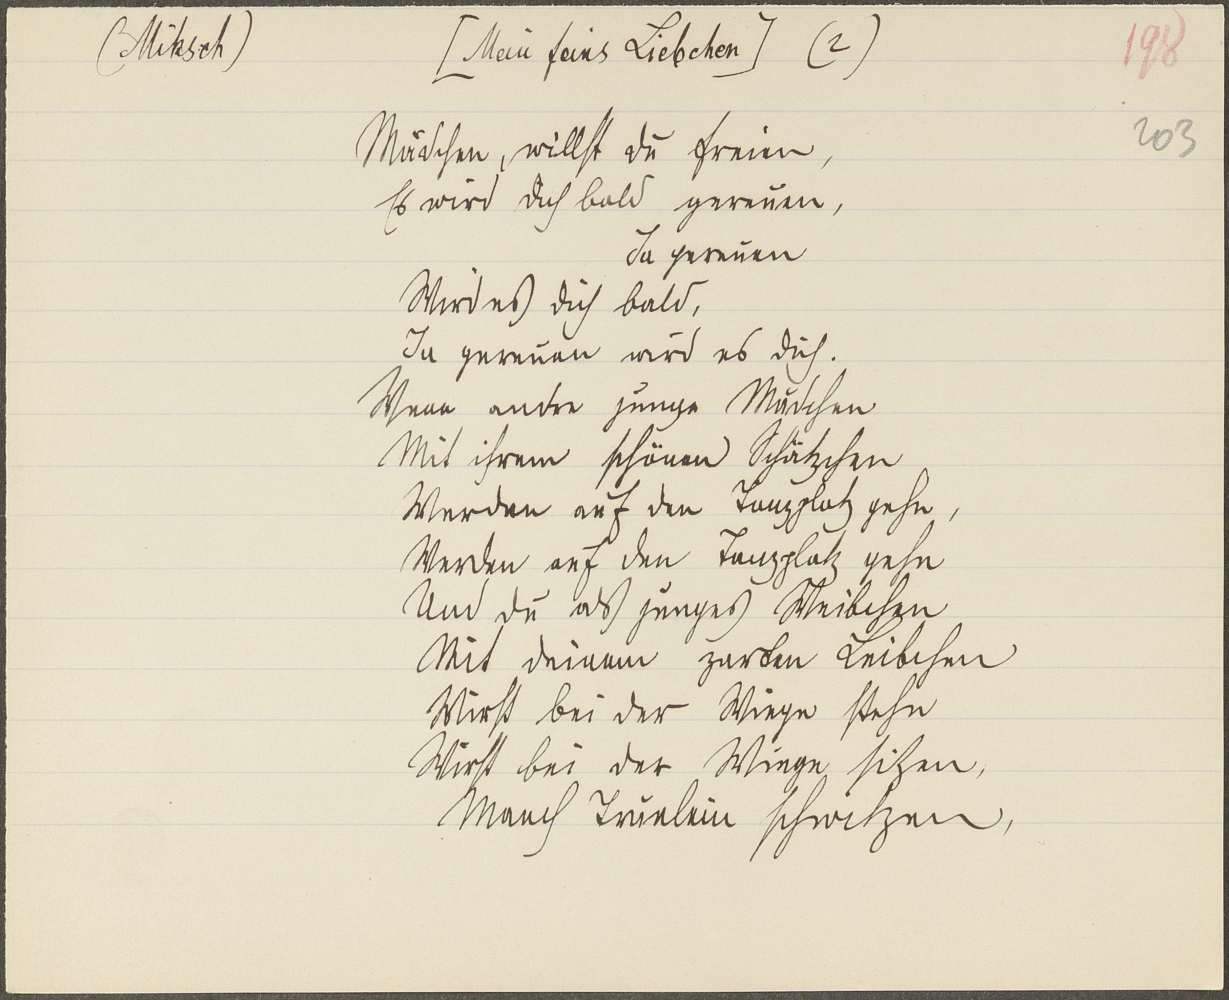 (Miksch) [Mein feins Liebchen] (2) 198
203
Mädchen, willst du freien,
Es wird dich bald gereuen,
Ja gereuen
Wird es dich bald,
Ja gereuen wird es dich.
Wenn andre junge Mädchen
Mit ihrem schönen Schätzchen
Werden auf den Tanzplatz gehn,
Werden auf den Tanzplatz gehn
Und du als junges Weibchen
Mit deinem zarten Leibchen
Wirst bei der Wiege stehn
Wirst bei der Wiege sitzen,
Manch schwitzen,